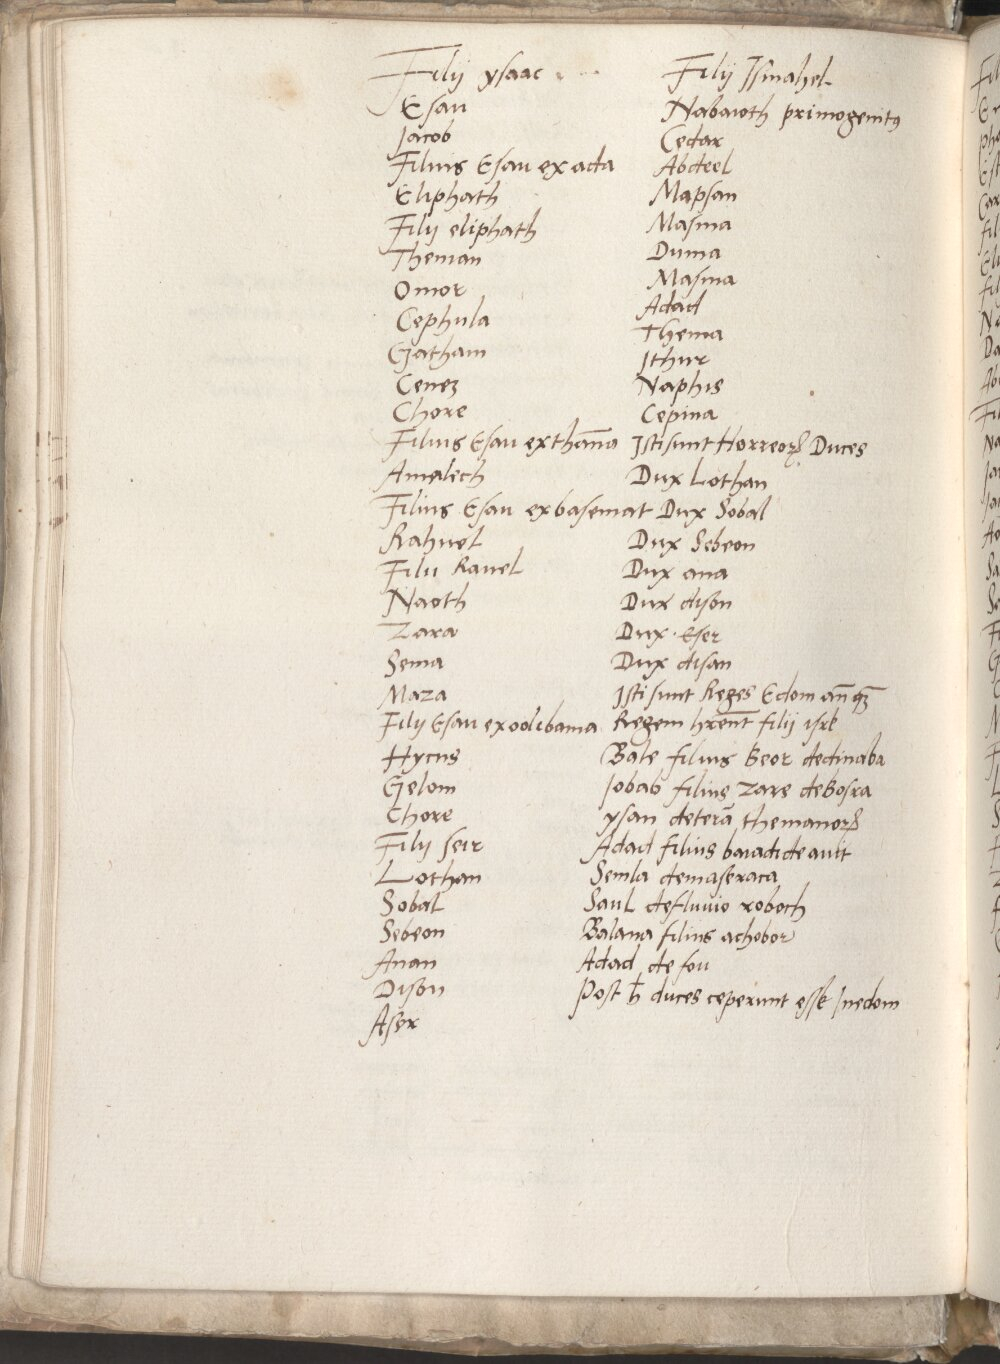 Filij ysaac
Esau
Jacob
Filius Esau ex ada
Eliphath
Filij eliphath
Theman
Omor
Cephula
Gatham
Cenez
Chore
Filius Esau ex thāna
Amalech
Filius Esau ex basemat
Rahuel
Filii Rauel
Naoth
Zara
Sema
Maza
Filij Esau ex oolibama
Hycus
Gelom
Chore
Filij seir
Lothan
Sobal
Sebeon
Anan
Dison
Aser
Filij Ismahel
Nabaioth primogenitꝰ
Cedar
Abdeel
Mapsan
Masma
Duma
Masma
Adad
Thema
Ithur
Naphis
Cepina
Isti sunt Horreoꝝ Duces
Dux Lothan
Dux Sobal
Dux Sebeon
Dux ana
Dux dison
Dux eser
Dux disan
Isti sunt Reges Edom
Regem filij isrl
Bale filius Beor de dinaba
Jobab filius Zare de Bosra
ysan de terā themanoꝝ
Adad filius
Semla de maseraca
Saul de fluuio roboth
Balana filius achobor
Adad de fou
Post h̄ duces ceperunt esse in edom